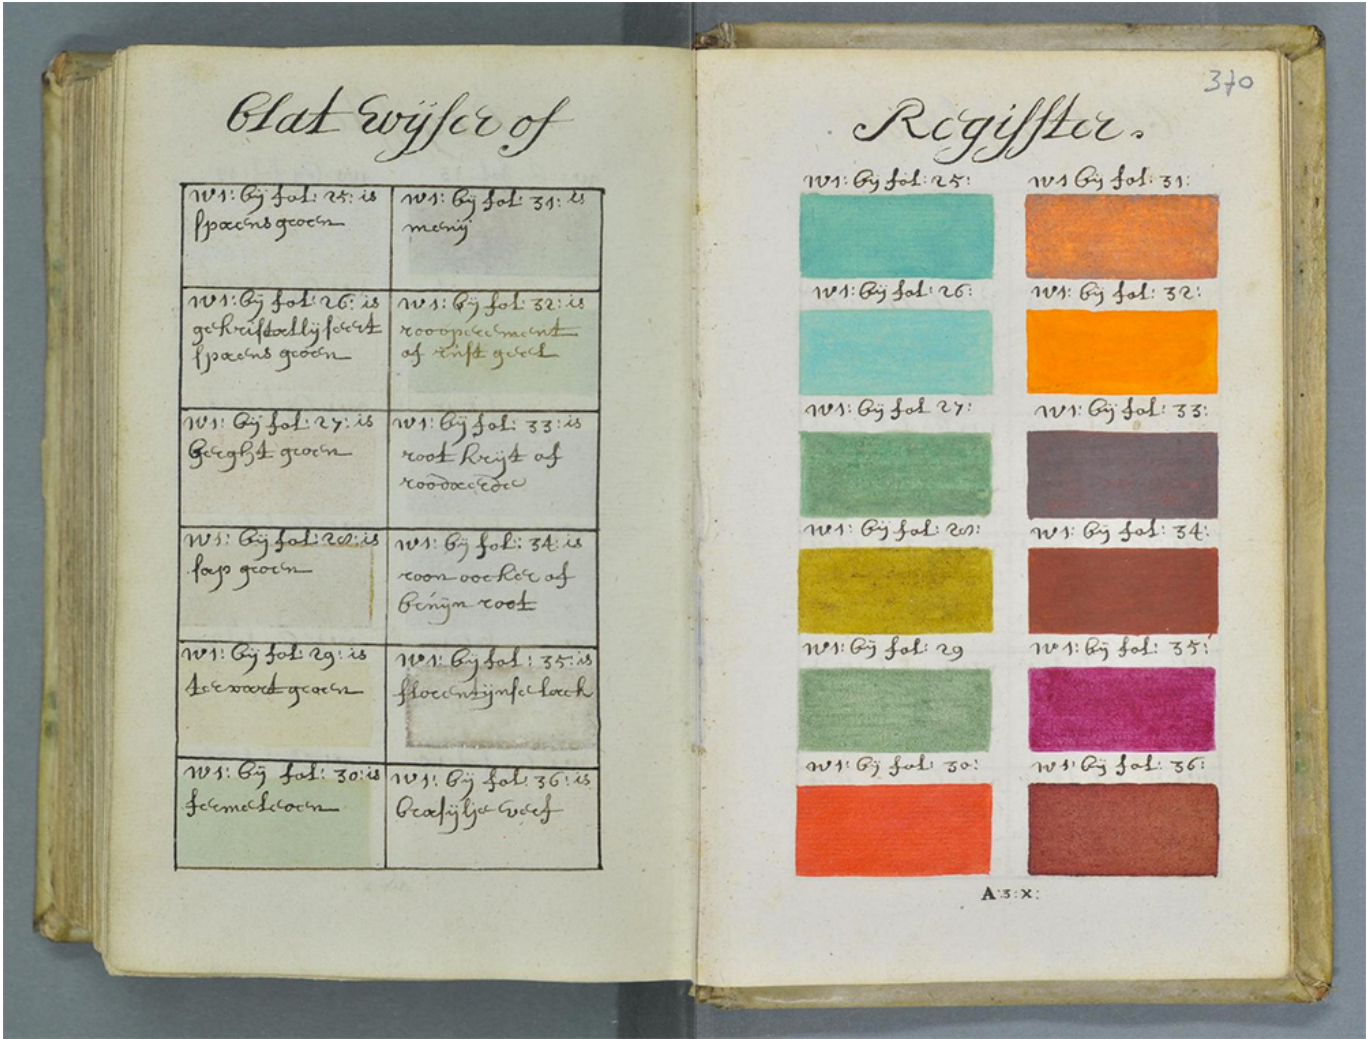 blat wÿser of
w1: bÿ fol: 25: is
spaens groen
w1: bÿ fol: 31: is
menÿ
w1: bÿ fol: 26: is
gekristallÿseert
spaens groen
w1: bÿ fol: 32: is
rooopereement
of rüst geel
w1: bÿ fol: 27: is
berght groen
w1: bÿ fol: 33: is
root krÿt of
roodaerde
w1: bÿ fol: 28: is
sap groen
w1: bÿ fol: 34: is
roon oocker of
brüÿn root
w1: bÿ fol: 29: is
terwart groen
w1: bÿ fol: 35: is
florentÿnse lack
w1: bÿ fol: 30: is
fermeleoen
w1: bÿ fol: 36: is
brasÿlje verf
370
Regisster.
w1: bÿ fol: 25:
w1 bÿ fol: 31:
w1: bÿ fol: 26:
w1: bÿ fol: 32:
w1: bÿ fol 27:
w1: bÿ fol: 33:
w1: bÿ fol: 28:
w1: bÿ fol: 34:
w1: bÿ fol: 29
w1: bÿ fol: 35:
w1: bÿ fol: 30:
w1: bÿ fol: 36:
A:3:X: